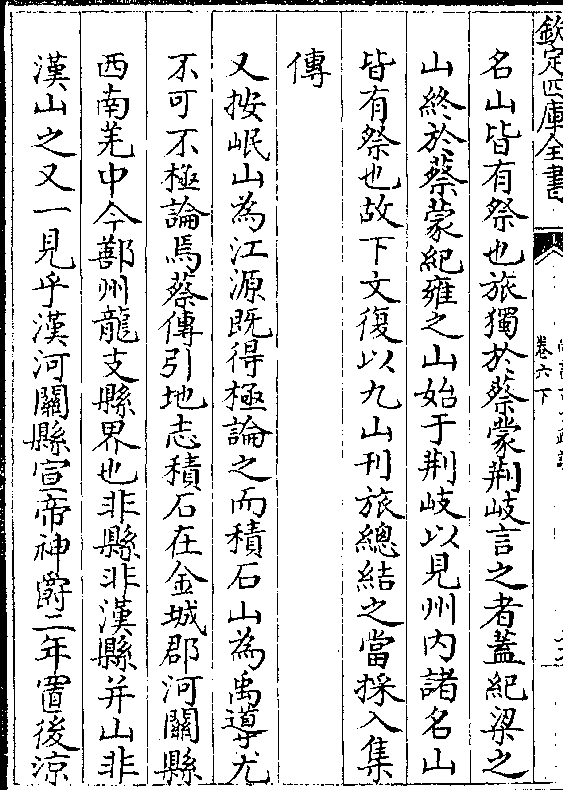 欽定四庫全書
卷六下
名山皆有祭也旅獨於蔡蒙荆岐言之者蓋紀梁之
山終於蔡蒙紀雍之山始于荆岐以見州内諸名山
皆有祭也故下文復以九山刊旅總結之當採入集
傳
又按岷山為江源既得極論之而積石山為禹導尤
不可不極論焉蔡傳引地志積石在金城郡河關縣
西南羌中今鄯州龍支縣界也非縣非漢縣并山非
漢山之又一見乎漢河關縣宣帝神爵二年置後涼